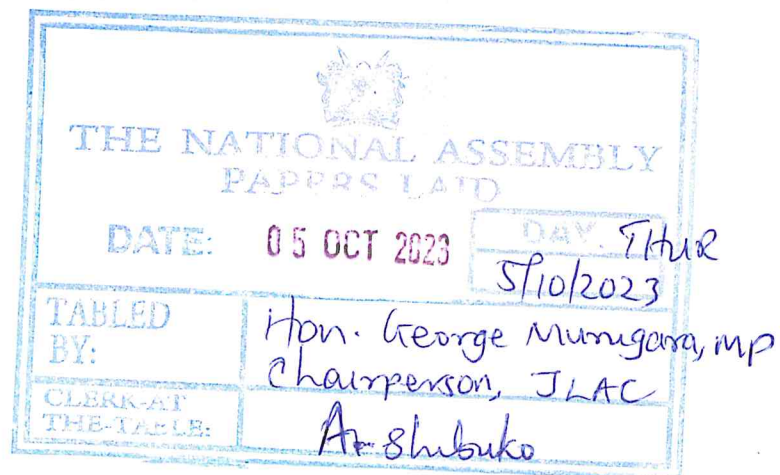 THE NATIONAL ASSEMBLY
PAPERS LAID
DATE: 05 OCT 2023 DAY. THUR
5/10/2023
TABLED
BY:
Hon. George Murugara, MP
Chairperson, JLAC
CLERK-AT
THE-TABLE:
Shibuko